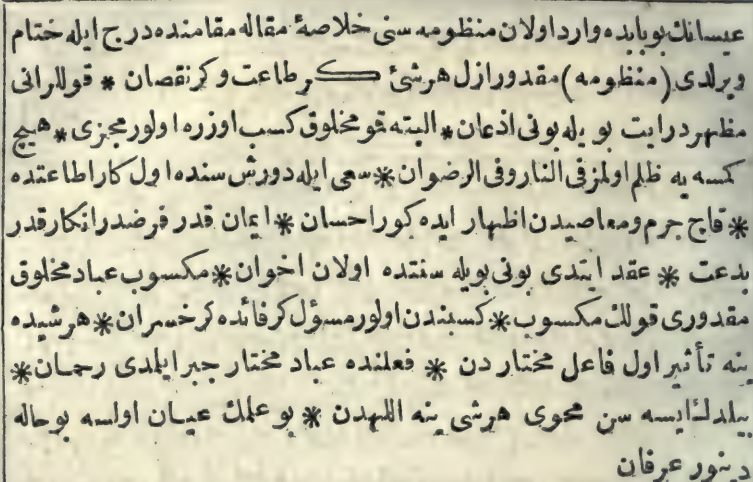 عیسانك بوبابده وارد اولان منظومه سنی خلاصهٔ مقاله مقامنده درج ایله ختام
ویرلدی (منظومه) مقدور ازل هرشئ کر طاعت وکر نقصان * قوللرانی
مظهردر ایت بویله بونی اذعان * البته قو مخلوق کسب اوزره اولور مجزی * هیچ
کمسه یه ظلم اولمز فی النار وفی الرضوان * سعی ایله دورش سنده اول کار اطاعتده
* قاچ جرم ومعاصیدن اظهار ایده کور احسان * ایمان قدر فرضدر انکار قدر
بدعت * عقد ایتدی بونی بویله سنتده اولان اخوان * مکسوب عباد مخلوق
مقدوری قولك مکسوب * کسبندن اولور مسؤل کر فائده کر خسران * هرشیده
ینه تأثیر اول فاعل مختاردن * فعلنده عباد مختار جبر ایلدی رحمان *
بیلدك ایسه سن محوی هرشی ینه اللهدن * بو علمك عیان اولسه بو حاله
دینور عرفان